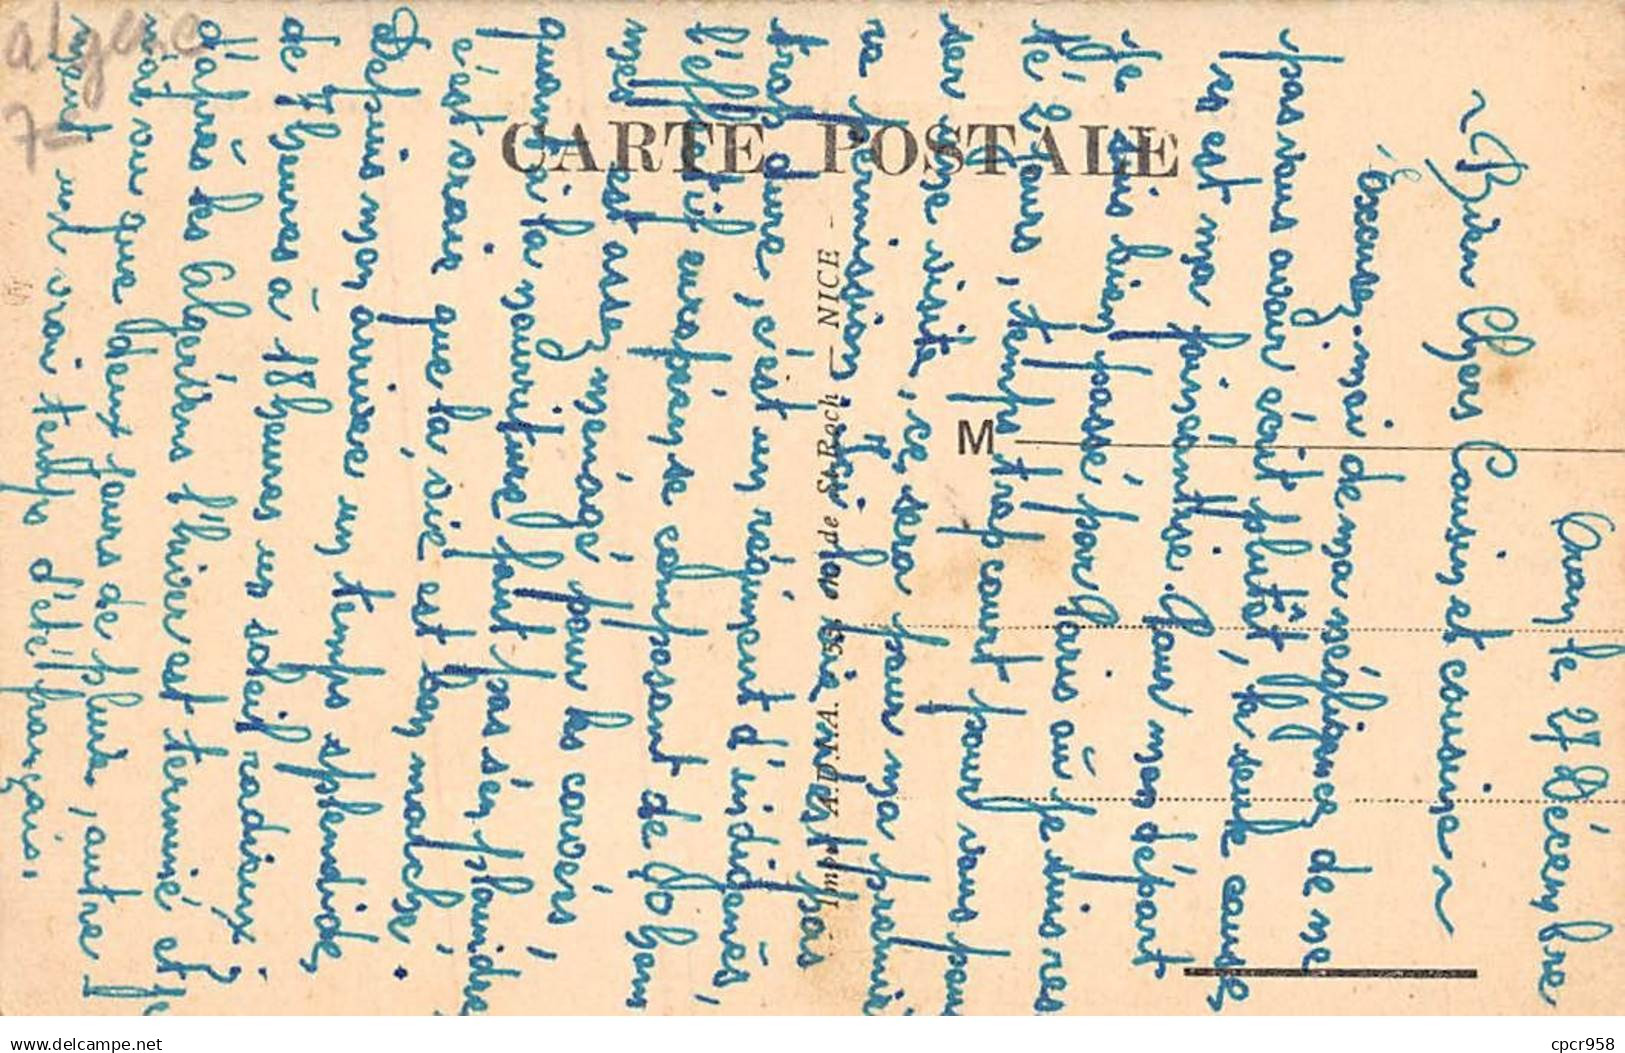 Oran le 27 Décembre
~ Bien Chers Cousin et cousine ~
Excusez-moi de ma négligence de ne
pas vous avoir écrit plutôt, la seule cause
es est ma fainéantise. Pour mon départ
je suis bien passé par Paris où je suis res
té 2 jours, temps trop court pour vous pous
ser une visite, ce sera pour ma premiè
re permission. Ici la vie n'est pas
trop dure, c'est un régiment d'indigènes,
l'effectif européen se composant de 20 hom
mes est assez ménagé pour les corvées,
quant à la nourriture faut pas s'en plaindre
c'est vrai que la vie est bon marché.
Depuis mon arrivée un temps splendide,
de 7 heures à 18 heures un soleil radieux
d'après les Algériens l'hiver est terminé et je
n'ai vu que deux jours de pluie, autre
ment un vrai temps d'été français.
CARTE POSTALE
M
Imp. A.D.I.A. 33, rue de St-Roch — NICE -
algerie
7-
www.delcampe.net
cpcr958